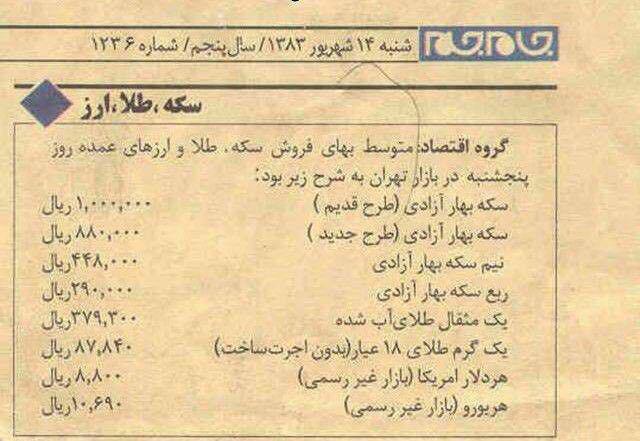 جام‌جم
شنبه ۱۴ شهریور ۱۳۸۳/ سال پنجم/ شماره ۱۲۳۶
سکه، طلا، ارز
گروه اقتصاد: متوسط بهای فروش سکه، طلا و ارزهای عمده روز
پنجشنبه در بازار تهران به شرح زیر بود:
سکه بهار آزادی (طرح قدیم) ۱,۰۰۰,۰۰۰ ریال
سکه بهار آزادی (طرح جدید) ۸۸۰,۰۰۰ ریال
نیم سکه بهار آزادی ۴۴۸,۰۰۰ ریال
ربع سکه بهار آزادی ۲۹۰,۰۰۰ ریال
یک مثقال طلای آب شده ۳۷۹,۳۰۰ ریال
یک گرم طلای ۱۸ عیار(بدون اجرت ساخت) ۸۷,۸۴۰ ریال
هردلار امریکا (بازار غیر رسمی) ۸,۸۰۰ ریال
هریورو (بازار غیر رسمی) ۱۰,۶۹۰ ریال